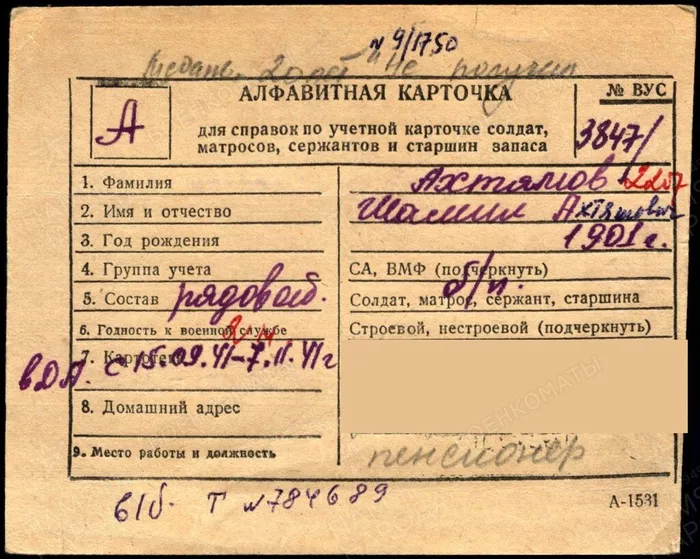 № 9/1750
Медаль "20 лет" не получил
АЛФАВИТНАЯ КАРТОЧКА
№ ВУС
А
для справок по учетной карточке солдат,
матросов, сержантов и старшин запаса
3847/
2257
1. Фамилия Ахтямов
2. Имя и отчество Шамил Ахтямович
3. Год рождения 1901 г.
4. Группа учета СА, ВМФ (подчеркнуть)
б/п.
5. Состав рядовой. Солдат, матрос, сержант, старшина
6. Годность к военной службе Строевой, нестроевой (подчеркнуть)
7. Картотека
в ДА. с 15.09.41–7.11.41 г
8. Домашний адрес
9. Место работы и должность пенсионер
в/б. Т №784689
А-1531